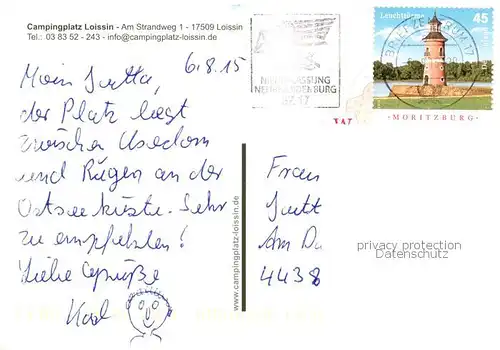 Campingplatz Loissin - Am Strandweg 1 - 17509 Loissin
Tel.: 03 83 52 - 243 - info@campingplatz-loissin.de
6.8.15
Moin Jutta,
der Platz liegt
zwischen Usedom
und Rügen an der
Ostseeküste. Sehr
zu empfehlen!
Liebe Grüße
Karl
www.campingplatz-loissin.de
NIEDERLASSUNG
NEUBRANDENBURG
BZ 17
Leuchttürme
45
BRIEFZENTRUM 17
MORITZBURG
Frau
Jutt
Am Du
4438
privacy protection
Datenschutz